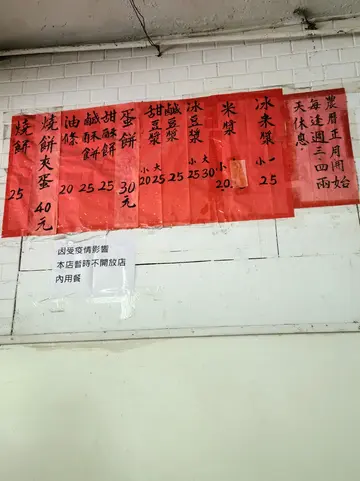 農曆正月開始
每逢週三、四兩
天休息.
冰米漿 小 25
米漿 小 20
冰豆漿 小 25 大 30
鹹豆漿 25
甜豆漿 小 20 大 25
蛋餅 30元
甜酥餅 25
鹹酥餅 25
油條 20
燒餅夾蛋 40元
燒餅 25
因受疫情影響
本店暫時不開放店
內用餐